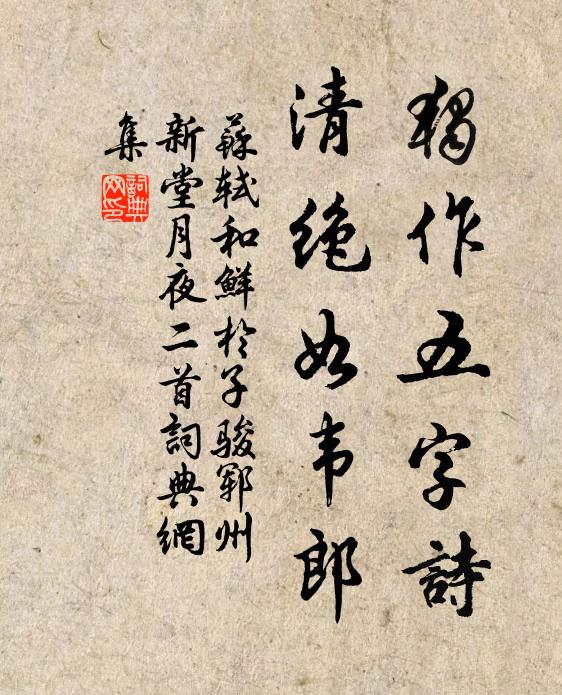 獨作五字詩
清绝如韦郎
蘇軾和鮮於子駿鄆州
新堂月夜二首詞典網
集
詞典
网印